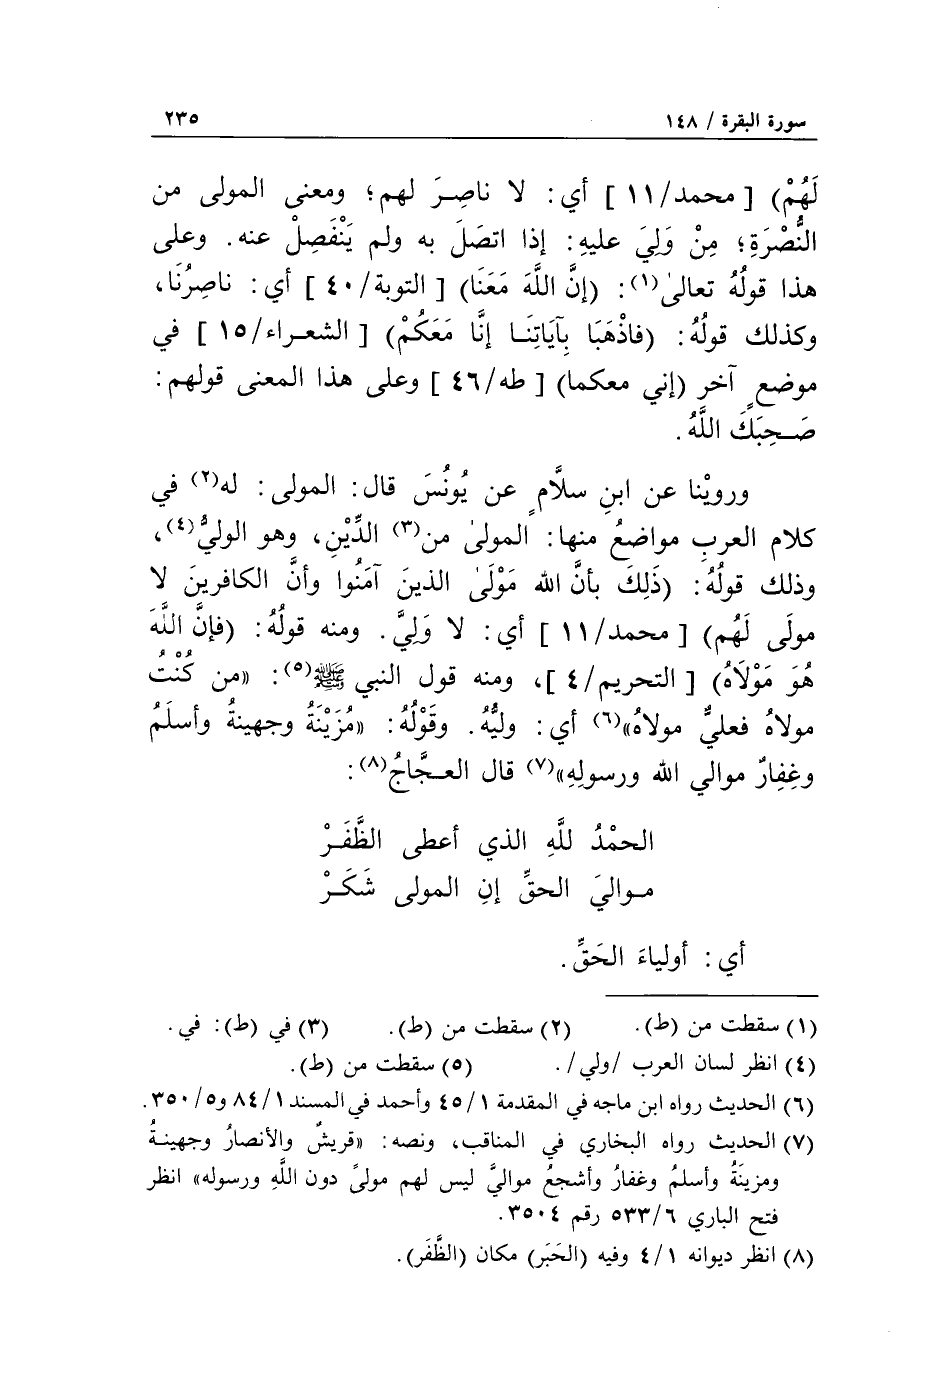 سورة البقرة / ١٤٨
٢٣٥
لَهُمْ) [ محمد/١١ ] أي: لا ناصِرَ لهم؛ ومعنى المولى من
النُّصْرَةِ؛ مِنْ وَلِيَ عليهِ: إذا اتصَلَ به ولم يَنْفَصِلْ عنه. وعلى
هذا قولُهُ تعالىٰ(١): (إنَّ اللَّهَ مَعَنَا) [ التوبة/٤٠ ] أي: ناصِرُنَا،
وكذلك قولُهُ: (فاذْهَبَا بِآيَاتِنَـا إنَّا مَعَكُمْ) [ الشعـراء/١٥ ] في
موضعٍ آخر (إني معكما) [ طه/٤٦ ] وعلى هذا المعنى قولهم:
صَـحِبَكَ اللَّهُ.
وروِيْنا عن ابنِ سلَّامٍ عن يُونُسَ قال: المولى: له(٢) في
كلام العربِ مواضعُ منها: المولىٰ من(٣) الدِّيْنِ، وهو الوليُّ(٤)،
وذلك قولُهُ: (ذَلِكَ بأنَّ الله مَوْلَىٰ الذينَ آمَنُوا وأنَّ الكافرينَ لا
مولَى لَهُم) [ محمد/١١ ] أي: لا وَلِيَّ. ومنه قولُهُ: (فإنَّ اللَّهَ
هُوَ مَوْلَاهُ) [ التحريم/٤ ]، ومنه قول النبي ﷺ(٥): «من كُنْتُ
مولاهُ فعليٌّ مولاهُ»(٦) أي: وليُّهُ. وقَوْلُهُ: «مُزَيْنَةُ وجهينةُ وأسلَمُ
وغِفِارٌ موالي الله ورسولِهِ»(٧) قال العـجَّاجُ(٨):
الحمْدُ للَّهِ الذي أعطى الظَّفَرْ
مـواليَ الحقِّ إنِ المولى شَكَـرْ
أي: أولياءَ الحَقِّ.
(١) سقطت من (ط). (٢) سقطت من (ط). (٣) في (ط): في.
(٤) انظر لسان العرب /ولي/. (٥) سقطت من (ط).
(٦) الحديث رواه ابن ماجه في المقدمة ٤٥/١ وأحمد في المسند ٨٤/١ و٣٥٠/٥.
(٧) الحديث رواه البخاري في المناقب، ونصه: «قريشٌ والأنصارُ وجهينـةُ
ومزينَةُ وأسلمُ وغفارُ وأشجعُ مواليَّ ليس لهم مولىً دون اللَّهِ ورسوله» انظر
فتح الباري ٥٣٣/٦ رقم ٣٥٠٤.
(٨) انظر ديوانه ٤/١ وفيه (الحَبَر) مكان (الظَّفَر).